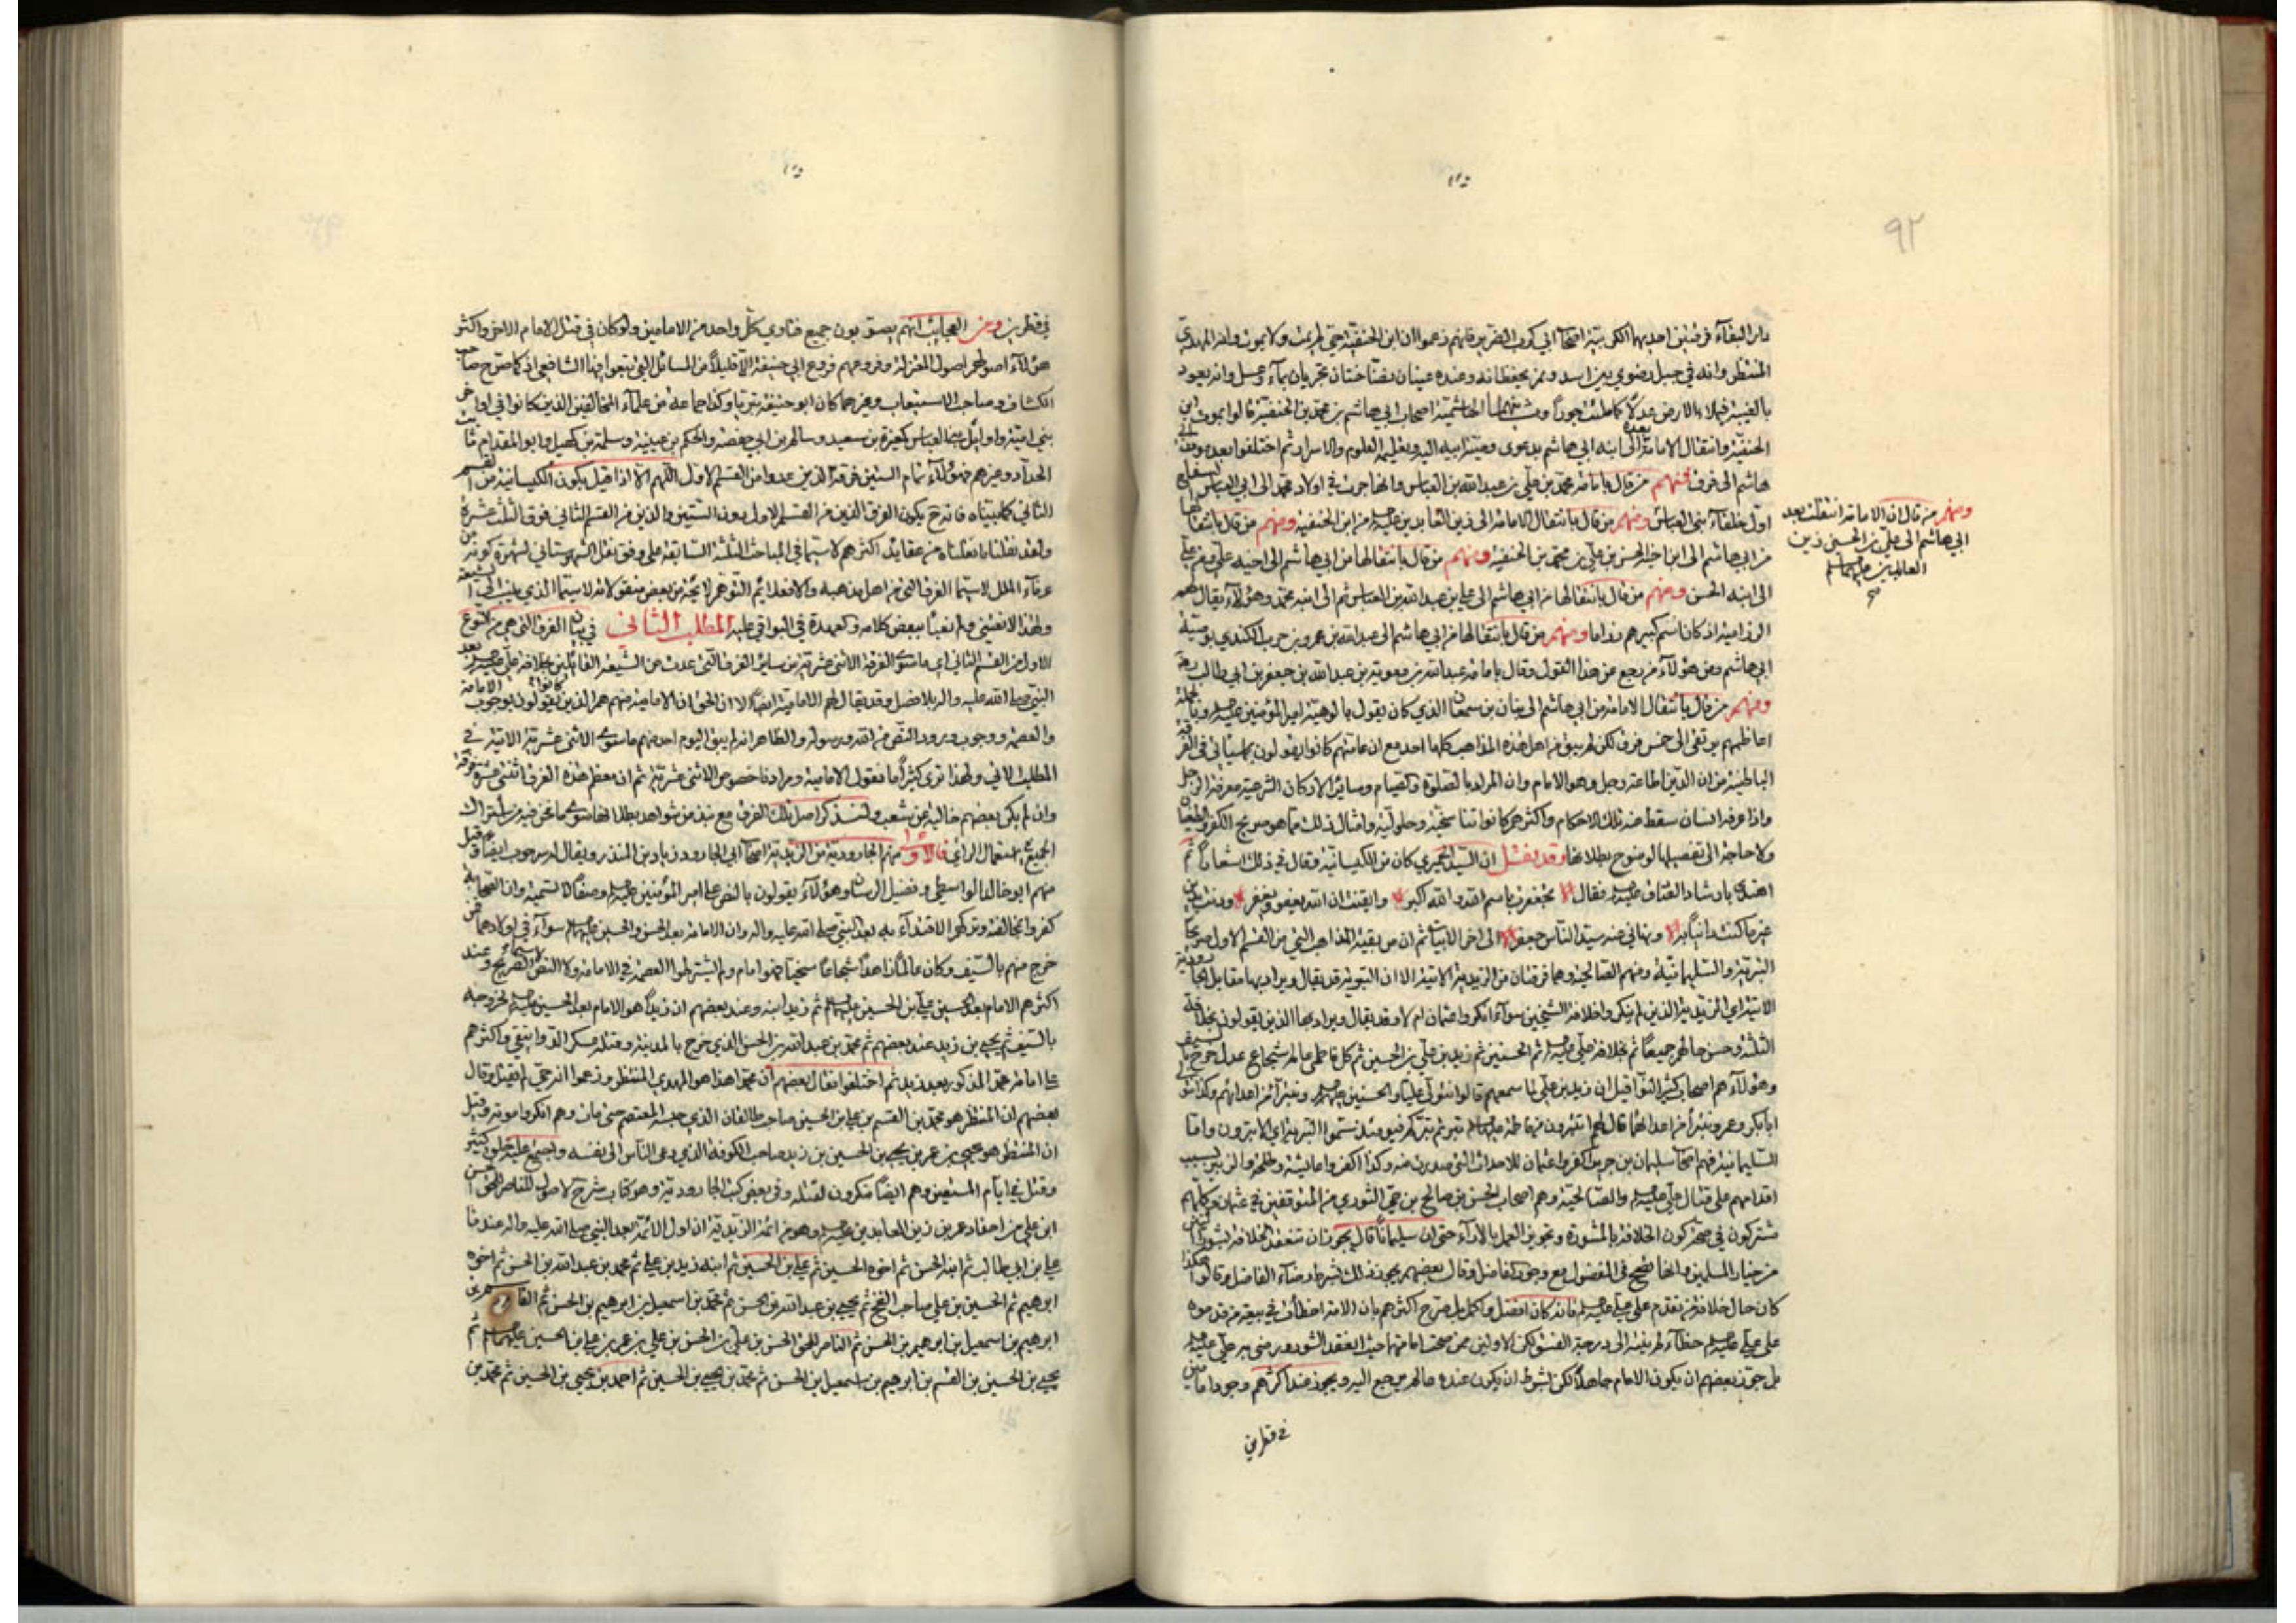 ٩٢
دار البقاء فرقتين احديهما الكربية اصحاب ابي كرب الضرير فانهم زعموا ان ابن الحنفية حي لم يمت ولا يموت وانه المهدي
المنتظر وانه في جبل رضوي بين اسد ونمر يحفظانه وعنده عينان نضاختان تجريان بماء وعسل وانه يعود
بالغيبة فيملاء الارض عدلا كما ملئت جورا الهاشمية اصحاب ابي هاشم بن محمد بن الحنفية قالوا بموت ابن
الحنفية وانتقال الامامة بعده الى ابنه ابي هاشم بدعوى ابيه اليه وتعليمه العلوم والاسرار ثم اختلفوا بعد موت ابي
هاشم الى فرق فمنهم من قال بامامة محمد بن علي بن عبد الله بن العباس وانها جرت في اولاد محمد الى ابي العباس السفاح
اول خلفاء بني العباس ومنهم من قال بانتقال الامامة الى زين العابدين من ابن الحنفية ومنهم من قال بانتقالها
من ابي هاشم الى ابن اخيه الحسن بن علي بن محمد بن الحنفية ومنهم من قال بانتقالها من ابي هاشم الى اخيه علي ومن علي
الى ابنه الحسن ومنهم من قال بانتقالها من ابي هاشم الى علي بن عبد الله بن العباس ثم الى ابنه محمد وهؤلاء يقال لهم
الرزامية اذ كان اسم كبيرهم رزاما ومنهم من قال بانتقالها من ابي هاشم الى عبد الله بن عمرو بن حرب الكندي بوصية
ابي هاشم ومن هؤلاء من رجع عن هذا القول وقال بامامة عبد الله بن معوية بن عبد الله بن جعفر بن ابي طالب
ومنهم من قال بانتقال الامامة من ابي هاشم الى بنان بن سمعان الذي كان يقول بالوهية امير المؤمنين وبالجملة
اعاظمهم يرتقي الى خمس فرق لكن لم يبق من اهل هذه المذاهب كلها احد مع ان عامتهم كانوا يقولون بما سياتي في الفرقة
الباطنية من ان الدين اطاعة رجل وهو الامام وان المراد بالصلوة والصيام وسائر الاركان الشرعية معرفة الرجل
واذا عرفه انسان سقط عنه تلك الاحكام واكثرهم كانوا تناسخية وحلولية وامثال ذلك مما هو صريح الكفر والطغيان
ولا حاجة الى تفصيلها لوضوح بطلانها وقد نقل ان السيد الحميري كان من الكيسانية وقال في ذلك اشعارا ثم
اهتدى بارشاد الصادق فقال تجعفرت باسم الله والله اكبر وايقنت ان الله يعفو ويغفر ودنت بدين
غير ما كنت داينا به ونهاني عنه سيد الناس جعفر الى اخر الابيات ثم ان من بقية المذاهب التي من القسم الاول صريحا
البترية والسليمانية ومنهم الصالحية وهما فرقتان من الزيدية الاتية الا ان البترية قد يقال ويراد بها مقابل الجارودية
الاتية اي الزيدية الذين لم ينكروا خلافة الشيخين سواء انكروا عثمان ام لا وقد يقال ويراد بها الذين يقولون بخلافة
الثلثة وحسن حالهم جميعا ثم بخلافة علي ثم الحسنين ثم زيد بن علي بن الحسين ثم كل فاطمي عالم شجاع عدل خرج بالسيف
وهؤلاء هم اصحاب كثير النوا قيل ان زيد بن علي لما سمعهم قالوا نتولى عليا والحسنين ونتبرأ من اعدائهم وكذا نتولى
ابابكر وعمر ونتبرأ من اعدائهما قال لهم اتتبرون من فاطمة بترتم بتركم فيومئذ سموا البترية اي الابترون واما
السليمانية فهم اصحاب سليمان بن جرير كفروا عثمان للاحداث التي صدرت منه وكذا اكفروا عايشة وطلحة والزبير بسبب
اقدامهم على قتال علي والصالحية وهم اصحاب الحسن بن صالح بن حي الثوري من المتوقفين في عثمان وكلهم
مشتركون في صحة كون الخلافة بالمشورة وتجويز العمل بالاراء حتى ان سليمان قال يجوز ان تنعقد الخلافة بشورى
من خيار المسلمين وانها تصح في المفضول مع وجود الفاضل وقال بعضهم يجوز ذلك بشرط رضاء الفاضل وقالوا هكذا
كان حال خلافة من تقدم على علي فانه كان افضل واكمل بل صرح اكثرهم بان الامة اخطأت في بيعة من قدموه
على علي خطاء لم ينته الى درجة الفسق لكن الاولين ممن صحت امامتهما حيث انعقد الشورى ورضي به علي
بل جوز بعضهم ان يكون الامام جاهلا لكن بشرط ان يكون عنده عالم يرجع اليه ويجوز عند اكثرهم وجود امامين
في قطرين
ومنهم من قال ان الامامة انتقلت بعد
ابي هاشم الى علي بن الحسين زين
العابدين
في قطرين ومن العجايب انهم يصوبون جميع فتاوي كل واحد من الامامين ولو كان في قتل الامام الاخر واكثر
هؤلاء اصولهم اصول المعتزلة وفروعهم فروع ابي حنيفة الا قليلا من المسائل التي تبعوا فيها الشافعي اذ كما صرح صاحب
الكشاف وصاحب الاستيعاب وغيرهما كان ابو حنيفة بتريا وكذا جماعة من علماء المخالفين الذين كانوا في اواخر
بني امية واوايل بني العباس كمغيرة بن سعيد وسالم بن ابي حفصة والحكم بن عيينة وسلمة بن كهيل وابو المقدام ثابت
الحداد وغيرهم فهؤلاء تمام الستين فرقة الذين عدوا من القسم الاول اللهم الا اذا قيل بكون الكيسانية من القسم
الثاني كما بيناه فانه ح يكون الفرق الذين من القسم الاول دون الستين والذين من القسم الثاني فوق الثلث عشرة
ولقد نقلنا ما نقلناه من عقايد اكثرهم لا سيما في المباحث الثلثة السابقة على وفق نقل الشهرستاني لشهرة كونه من
عرفاء الملل لا سيما الفرق التي من اهل مذهبه والا فعدائم التوفر لا يخفى من بعض منقولاته لا سيما الذي الى الشيعة
المطلب الثاني في بيان الفرق التي هي من النوع
الاول من القسم الثاني اي ما سوى الفرقة الاثني عشرية من سائر الفرق التي عدت من الشيعة القائلين بخلافة علي بعد
النبي صلى الله عليه واله بلا فصل وقد يقال لهم الامامية ايضا الا ان الحق ان الامامية منهم هم الذين كانوا يقولون بوجوب الامامة
والعصمة ووجوب ورود النص من الله ورسوله والظاهر انه لم يبق اليوم احد منهم ما سوى الاثني عشرية الاتية في
المطلب الاتي ولهذا ترى كثيرا ما نقول الامامية ومرادنا خصوص الاثني عشرية ثم ان معظم هذه الفرق اثنتي عشرة فرقة
وان لم يكن بعضهم خالية عن شعب ولنذكر اصل تلك الفرق مع نبذ من شواهد بطلانها سوى ما نحن فيه من اشتراك
الجميع في استعمال الراي فالاولى منهم الجارودية من الزيدية اصحاب ابي الجارود زياد بن المنذر ويقال له سرحوب ايضا وقيل
منهم ابو خالد الواسطي وفضيل الرسان وهؤلاء يقولون بالنص على امير المؤمنين وصفا لا تسمية وان الصحابة
كفروا بمخالفته وتركهم الاقتداء به بعد النبي صلى الله عليه واله وان الامامة بعد الحسن والحسين سواء في اولادهما فمن
خرج منهم بالسيف وكان عالما زاهدا شجاعا سخيا فهو امام ولم يشترطوا العصمة في الامامة ولا النص الصريح وعند
اكثرهم الامام بعد الحسين علي بن الحسين ثم زيد ابنه وعند بعضهم ان زيدا هو الامام بعد الحسين لخروجه
بالسيف ثم يحيى بن زيد عند بعضهم ثم محمد بن عبد الله بن الحسن الذي خرج بالمدينة وقتله عسكر الدوانيقي واكثرهم
على امامة محمد المذكور بعد زيد ثم اختلفوا فقال بعضهم ان محمدا هذا هو المهدي المنتظر وزعموا انه حي لم يقتل وقال
بعضهم ان المنتظر هو محمد بن القسم بن علي بن الحسين صاحب طالقان الذي حبسه المعتصم حتى مات وهم انكروا موته وقيل
ان المنتظر هو يحيى بن عمر بن يحيى بن الحسين بن زيد صاحب الكوفة الذي دعى الناس الى نفسه واجتمع عليه خلق كثير
وقتل في ايام المستعين وهم ايضا منكرون لقتله وفي بعض كتب الجارودية وهو كتاب شرح الاصول للناصر للحق الحسن
ابن علي من احفاد عمر بن زين العابدين وهو من ائمة الزيدية ان اول الائمة بعد النبي صلى الله عليه واله عندنا
علي بن ابي طالب ثم ابنه الحسن ثم اخوه الحسين ثم علي بن الحسين ثم ابنه زيد بن علي ثم محمد بن عبد الله بن الحسن ثم اخوه
ابرهيم ثم الحسين بن علي صاحب الفخ ثم يحيى بن عبد الله بن الحسن ثم محمد بن اسمعيل بن ابرهيم بن الحسن ثم القاسم بن
ابرهيم بن اسمعيل بن ابرهيم بن الحسن ثم الناصر للحق الحسن بن علي بن الحسن بن علي بن عمر بن علي بن الحسين ثم
يحيى بن الحسين بن القسم بن ابرهيم بن اسمعيل بن الحسن ثم محمد بن يحيى بن الحسين ثم احمد بن يحيى بن الحسين ثم محمد بن